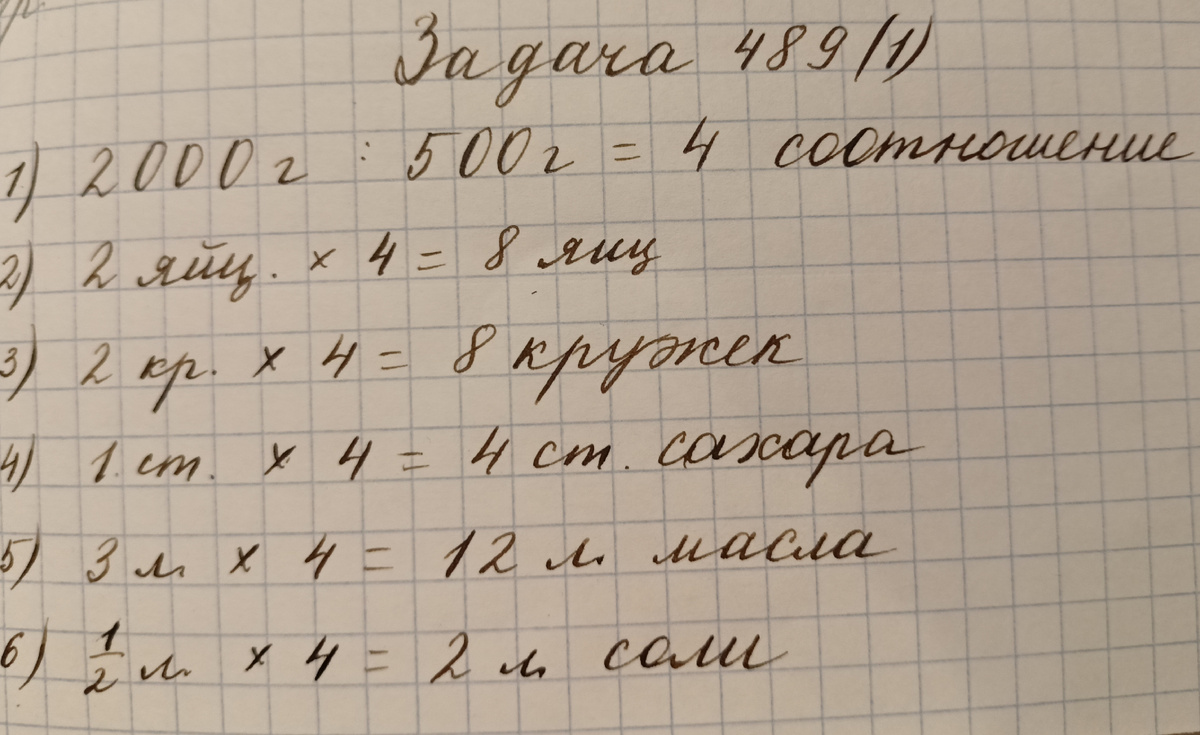 Задача 489(1)
1) 2000г : 500г = 4 соотношение
2) 2 яйц. × 4 = 8 яиц
3) 2 кр. × 4 = 8 кружек
4) 1 ст. × 4 = 4 ст. сахара
5) 3 л. × 4 = 12 л. масла
6) 1/2 л. × 4 = 2 л. соли